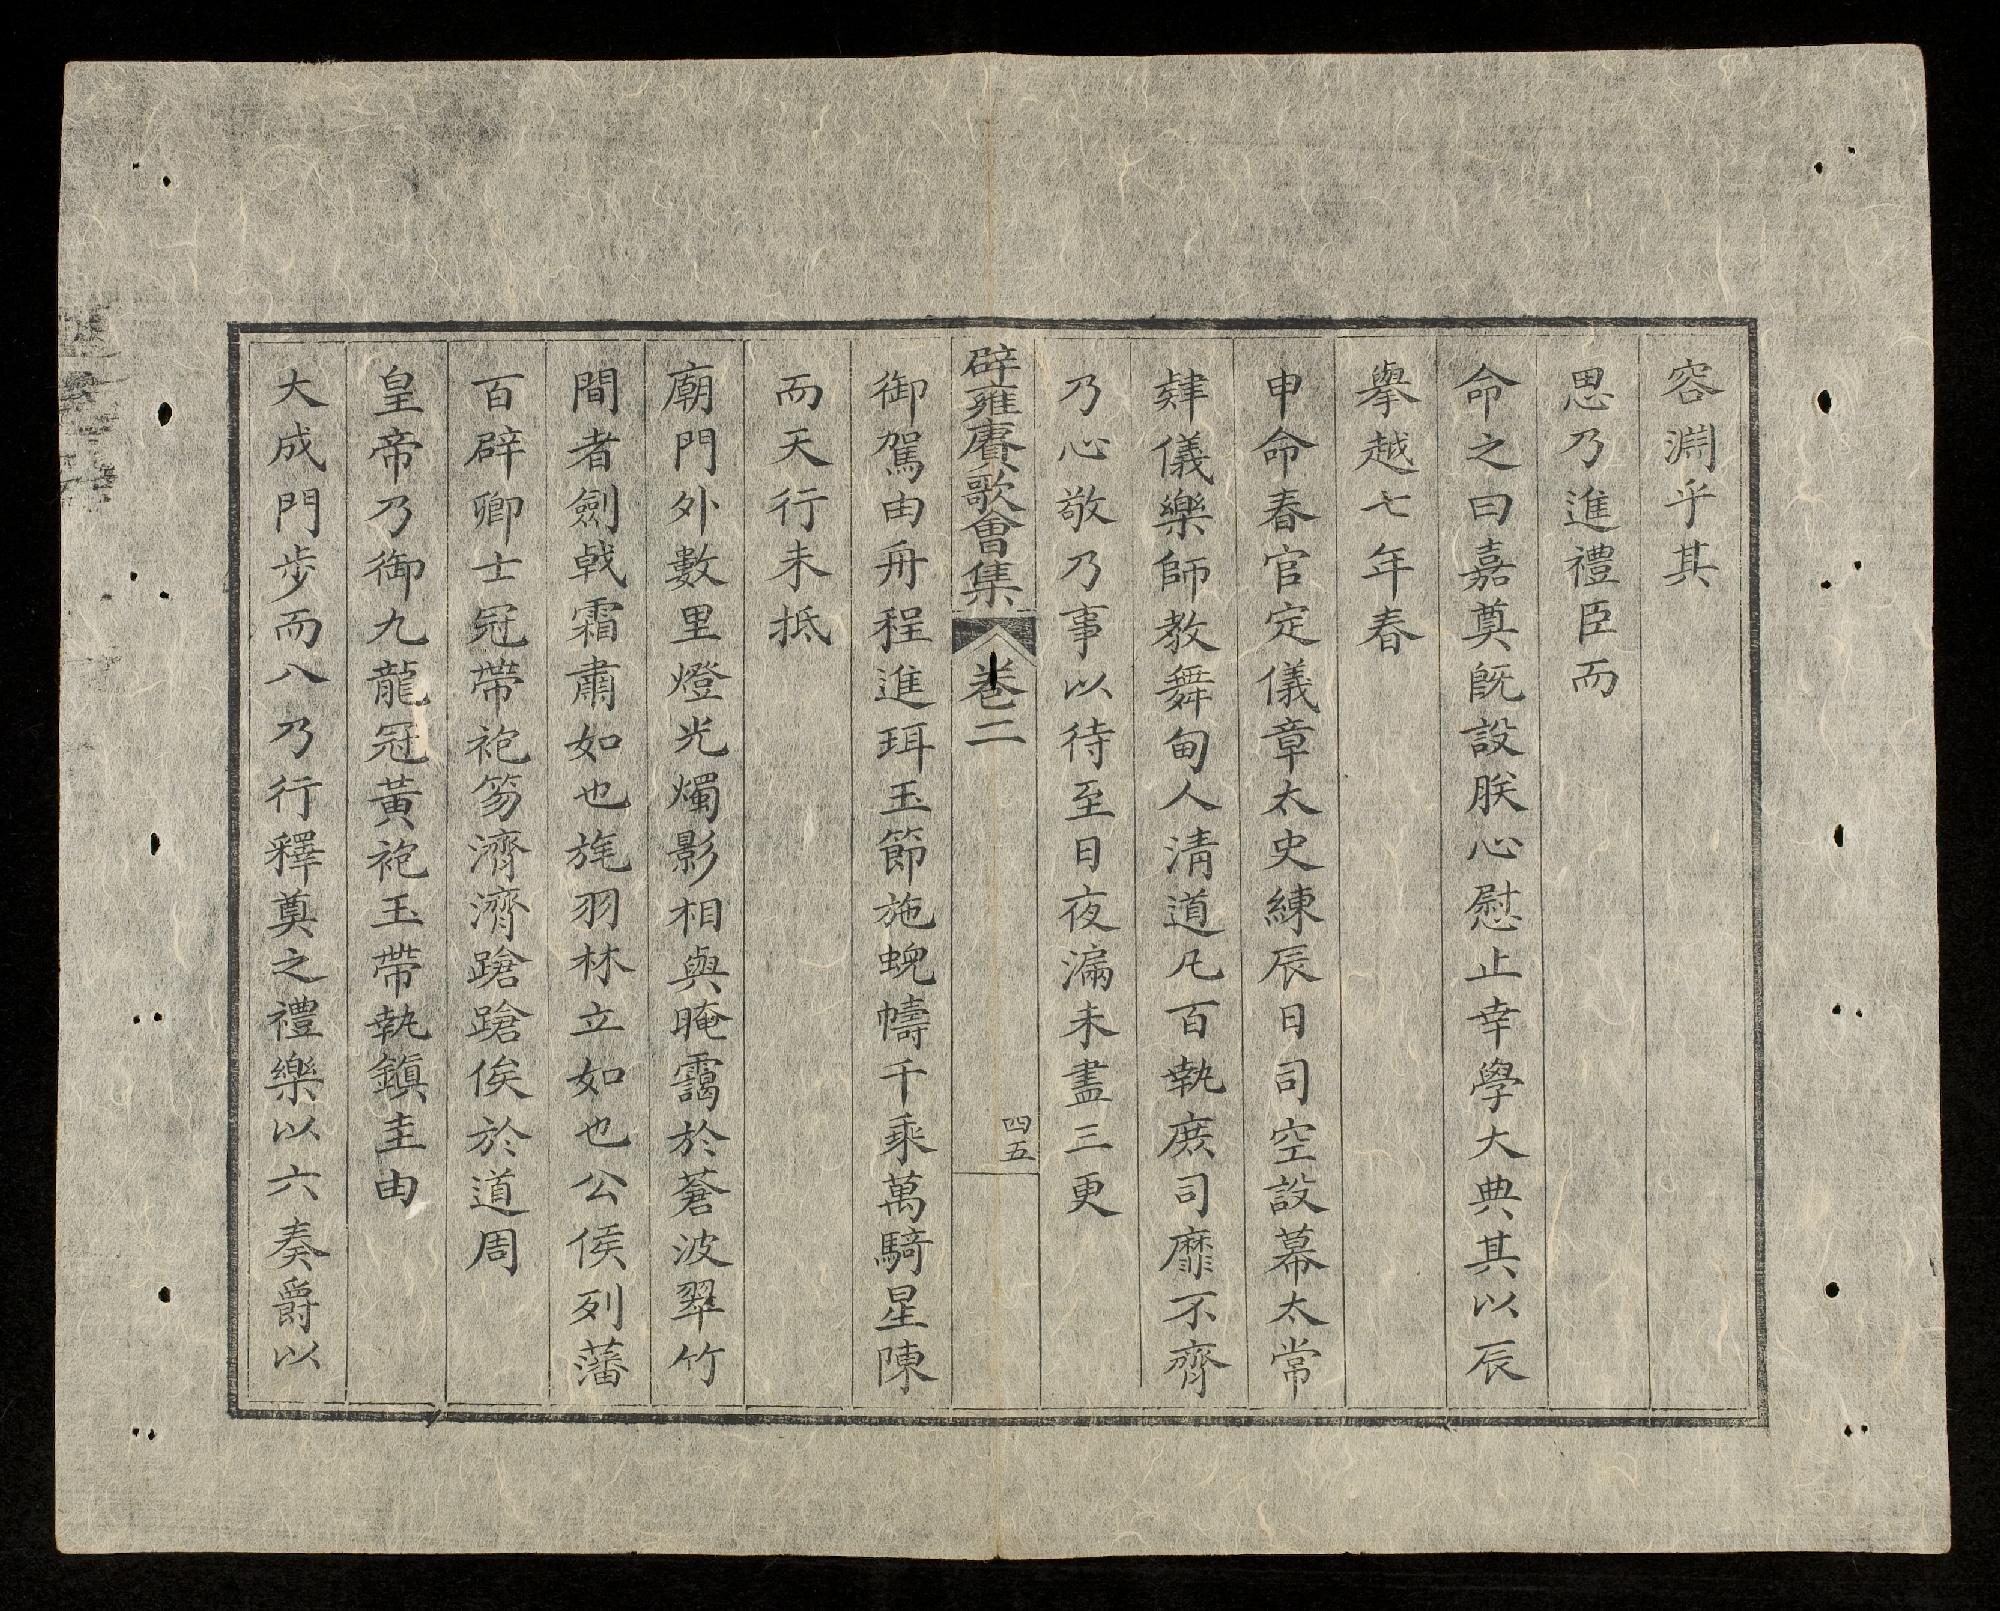 容淵乎其
思乃進禮臣而
命之曰嘉奠既設朕心慰止幸學大典其以辰
擧越七年春
申命春官定儀章太史練辰日司空設幕太常
肄儀樂師教舞甸人清道凡百執庶司靡不齊
乃心敬乃事以待至日夜漏未盡三更
辟雍賡歌會集 卷二 四五
御駕由舟程進珥玉節施蜺幬千乘萬騎星陳
而天行未抵
廟門外數里燈光燭影相與晻靄於蒼波翠竹
間者劍戟霜肅如也旄羽林立如也公侯列藩
百辟卿士冠帶袍笏濟濟蹌蹌俟於道周
皇帝乃御九龍冠黃袍玉帶執鎭圭由
大成門步而入乃行釋奠之禮樂以六奏爵以